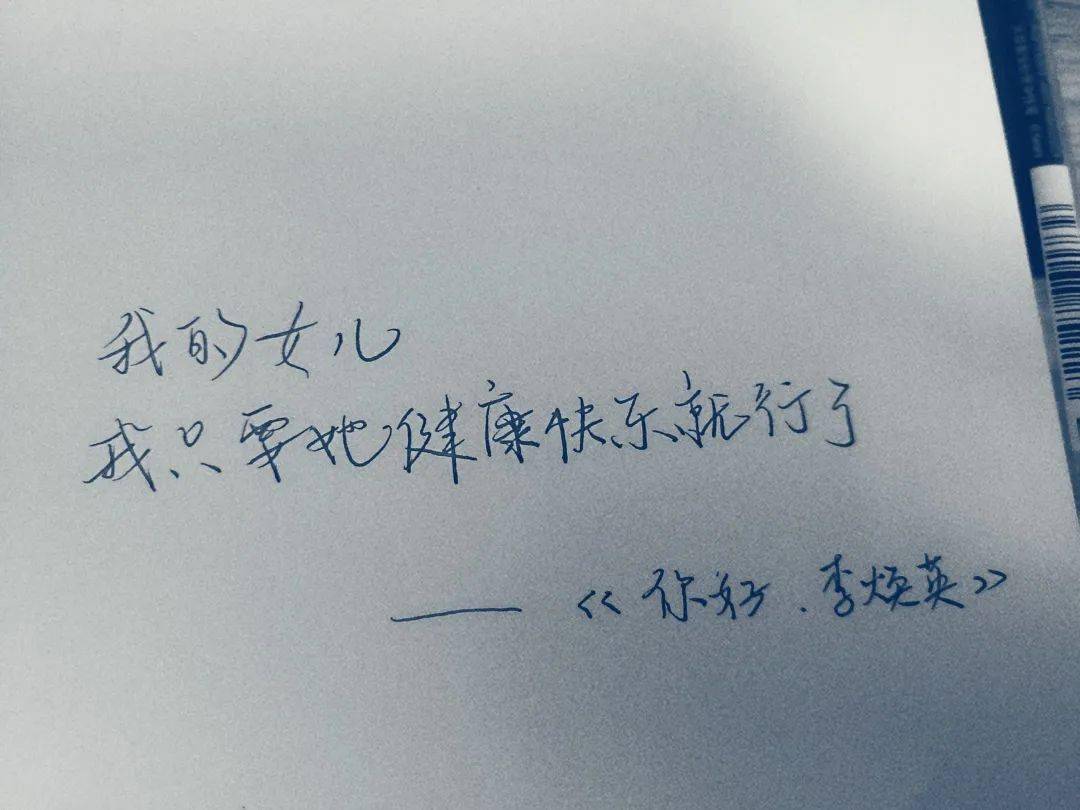 我的女儿
我只要她健康快乐就行了
——《你好.李焕英》